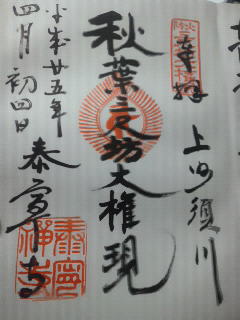 奉拝 上日川
秋葉三尺坊大権現
平成廿五年
四月初四日
泰寧寺
泰寧禅寺